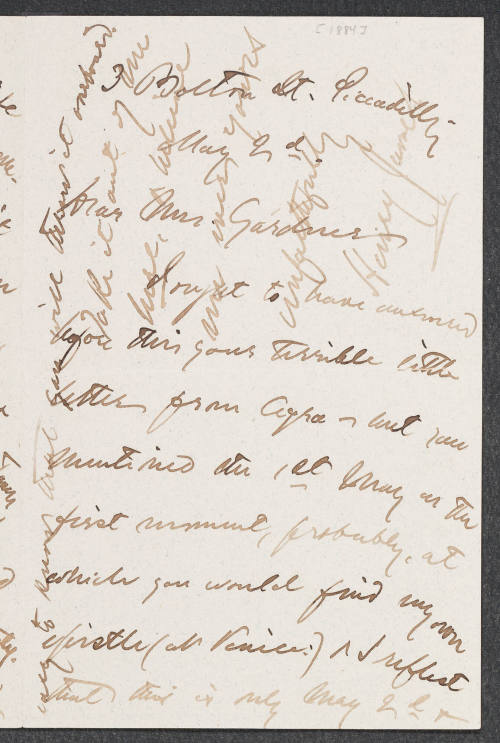 [1884]
3 Bolton St. Piccadilly.
May 2d.
Dear Mrs. Gardner
I ought to have answered
before this your terrible little
letter from Agra – but you
mentioned the 1st May as the
first moment, probably, at
which you would find my own
epistle (at Venice:) & I reflect
that this is only May 2d &
that you will turn it onward.
take it out of me
here, believe
me ever yours
unfaithfully
Henry James